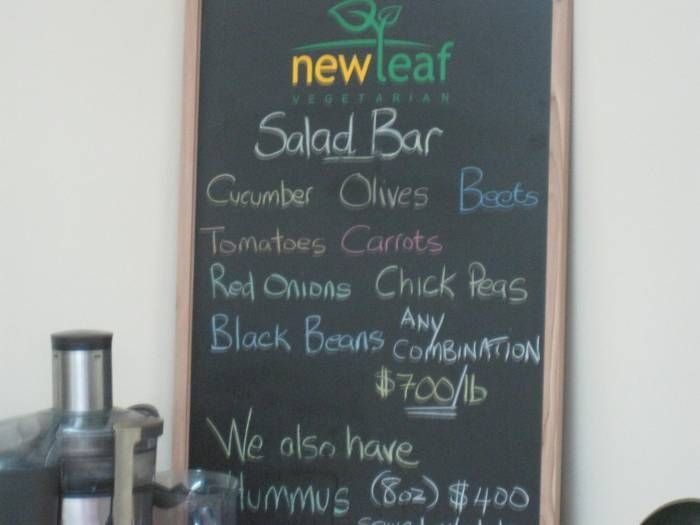 newleaf
VEGETARIAN
Salad Bar
Cucumber Olives Beets
Tomatoes Carrots
Red Onions Chick Peas
Black Beans ANY COMBINATION
$700/lb
We also have
Hummus (8oz) $400